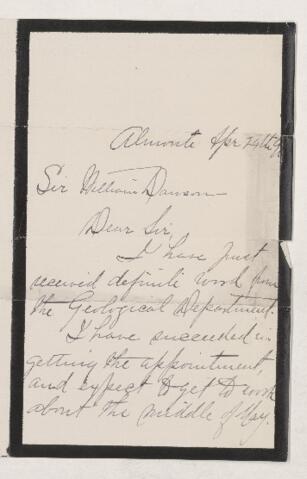 Almonte Apr 29th
Sir William Dawson
Dear Sir,
I have just
received definite word from
the Geological Department.
I have succeeded in
getting the appointment,
and expect to get to work
about the middle of May.